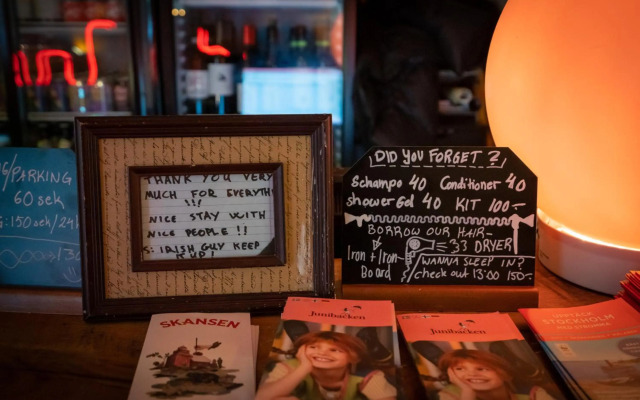 /PARKING
60 sek
G: 150 sek/24h
THANK YOU VERY
MUCH FOR EVERYTH
!!!
NICE STAY WITH
NICE PEOPLE !!
S: IRISH GUY KEEP
DID YOU FORGET ?
Schampo 40 Conditioner 40
shower Gel 40 KIT 100:-
BORROW OUR HAIR-
DRYER
Iron + Iron
Board
WANNA SLEEP IN?
check out 13:00 150:-
SKANSEN
Junibacken
Junibacken
STOCKHOLM